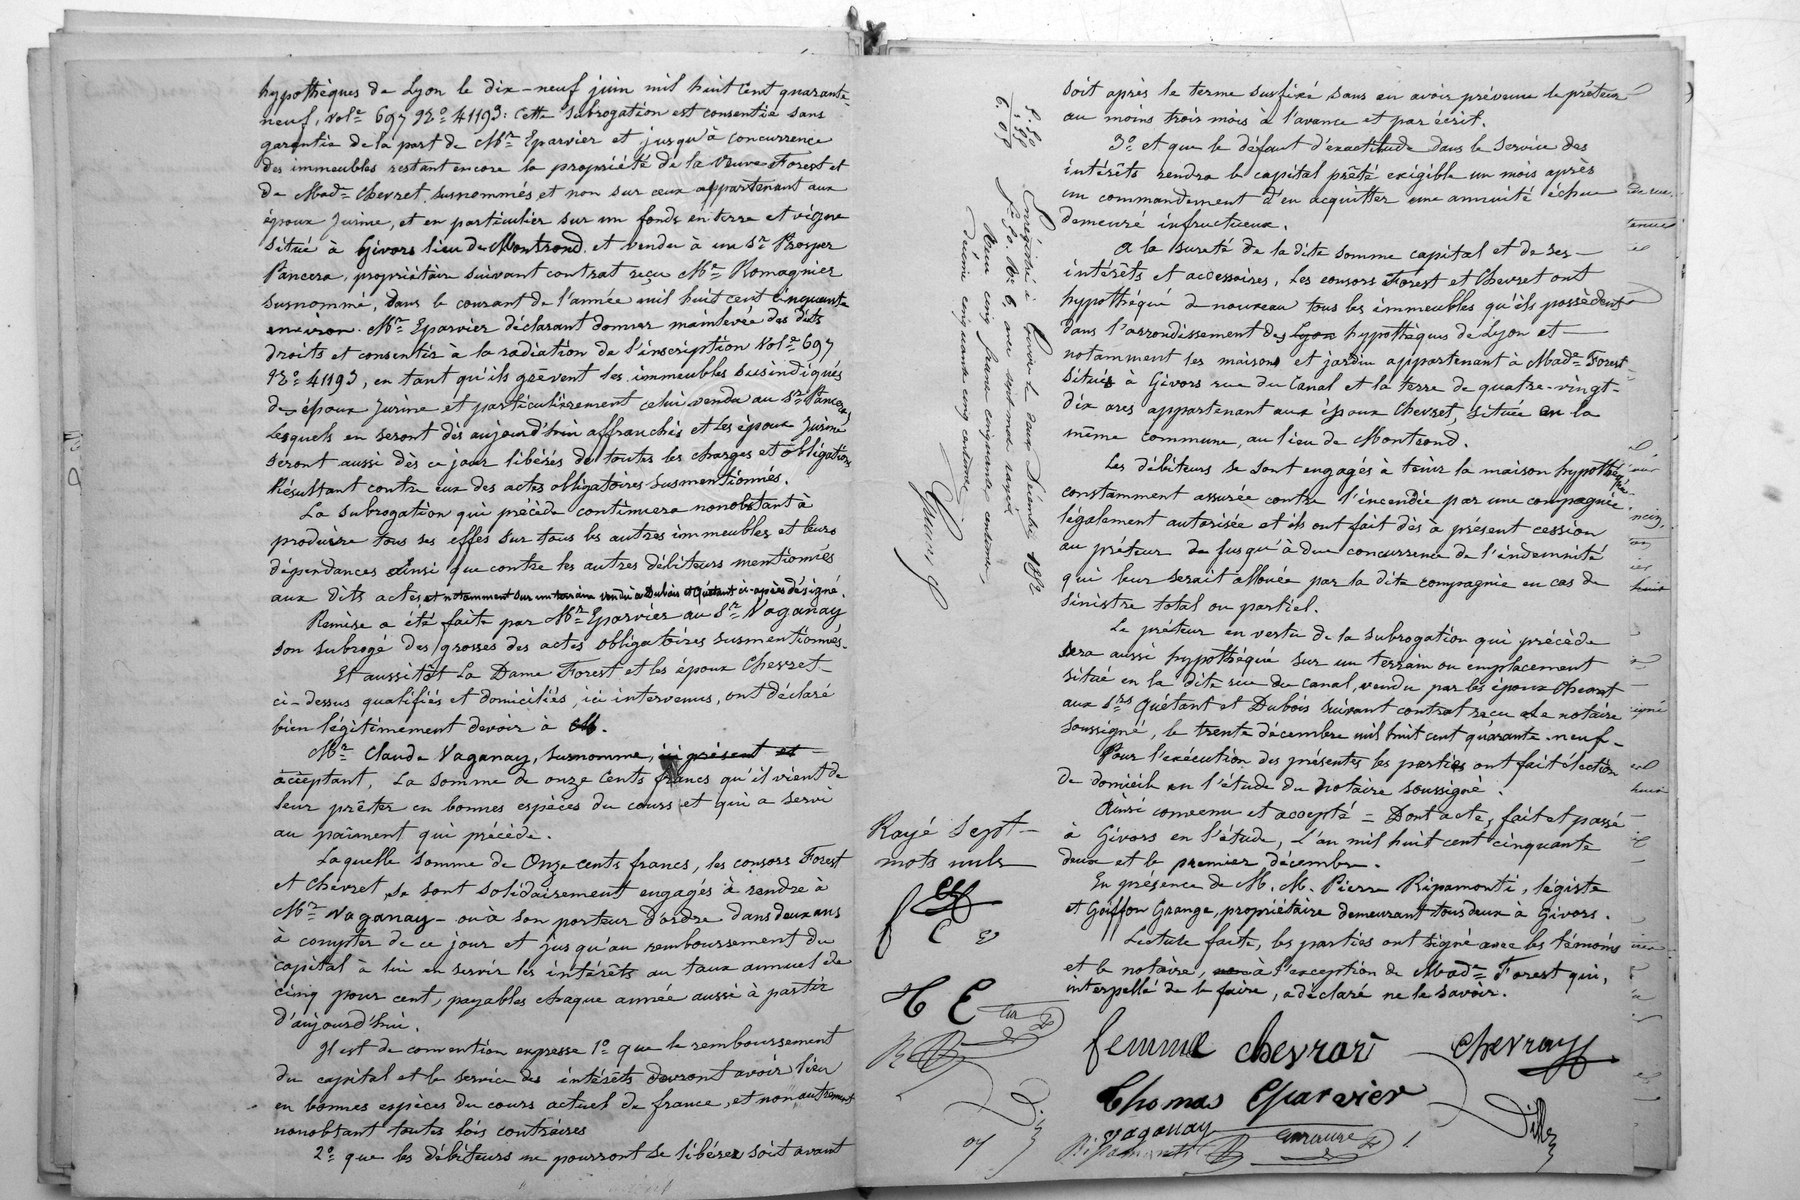 hypothèques de Lyon le dix-neuf juin mil huit cent quarante-
neuf, vol.e 697 N.o 41193. Cette subrogation est consentie sans
garantie de la part de M.r Eparvier et jusqu'à concurrence
des immeubles restant encore la propriété de la veuve Forest et
de Mad.e Chevret susnommés et non sur ceux appartenant aux
époux Jurine, et en particulier sur un fonds en terre et vigne
situé à Givors lieu de Montrond et vendu à un s.r Prosper
Pancera, propriétaire suivant contrat reçu M.e Romagnier
susnommé, dans le courant de l'année mil huit cent cinquante
environ. M.r Eparvier déclarant donner mainlevée des dits
droits et consentir à la radiation de l'inscription vol.e 697
N.o 41193, en tant qu'ils grèvent les immeubles susindiqués
des époux Jurine et particulièrement celui vendu au s.r Pancera,
lesquels en seront dès aujourd'hui affranchis et les époux Jurine
seront aussi dès ce jour libérés de toutes les charges et obligations
Résultant contre eux des actes obligatoires susmentionnés.
La subrogation qui précède continuera nonobstant à
produire tous ses effes sur tous les autres immeubles et leurs
dépendances ainsi que contre les autres débiteurs mentionnés
aux dits actes et notamment sur un terrain vendu à Dubois et Quétant ci-après désigné.
Remise a été faite par M.r Eparvier au S.r Vaganay
son subrogé des grosses des actes obligatoires susmentionnés.
Et aussitôt La Dame Forest et les époux Chevret
ci-dessus qualifiés et domiciliés, ici intervenus, ont déclaré
bien légitimement devoir à M.
M.r Claude Vaganay, susnommé, ici présent et
acceptant, La somme de onze cents francs qu'il vient de
leur prêter en bonnes espèces du cours et qui a servi
au paiment qui précède.
Laquelle somme de Onze cents francs, les consors Forest
et Chevret se sont solidairement engagés à rendre à
M.r Vaganay - ou à son porteur d'ordre dans deux ans
à compter de ce jour et jusqu'au remboursement du
capital à lui en servir les intérêts au taux annuel de
cinq pour cent, payables chaque année aussi à partir
d'aujourd'hui.
Il est de convention expresse 1.o que le remboursement
du capital et le service des intérêts devront avoir lieu
en bonnes espèces du cours actuel de france, et non autrement
nonobstant toutes lois contraires
2.o que les débiteurs ne pourront se libérer soit avant
soit après le terme susfixé sans en avoir prévenu le prêteur
au moins trois mois à l'avance et par écrit.
3.o et que le défaut d'exactitude dans le service des
intérêts rendra le capital prêté exigible un mois après
un commandement d'en acquitter une annuité échue
demeuré infructueux.
A la sureté de la dite somme capital et de ses
intérêts et accessoires, Les consors Forest et Chevret ont
hypothéqué de nouveau tous les immeubles qu'ils possèdent
dans l'arrondissement des Lyon hypothèques de Lyon et
notamment les maisons et jardin appartenant à Mad.e Forest
situés à Givors rue du Canal et la terre de quatre-vingt-
dix ares appartenant aux époux Chevret, située en la
même commune, au lieu de Montrond.
Les débiteurs se sont engagés à tenir la maison hypothéquée
constamment assurée contre l'incendie par une compagnie
légalement autorisée et ils ont fait dès à présent cession
au prêteur de jusqu'à due concurrence de l'indemnité
qui leur serait allouée par la dite compagnie en cas de
sinistre total ou partiel.
Le prêteur en vertu de la subrogation qui précède
sera aussi hypothéqué sur un terrain ou emplacement
situé en la dite rue du Canal, vendu par les époux Chevret
aux s.rs Quétant et Dubois suivant contrat reçu le notaire
soussigné, le trente décembre mil huit cent quarante-neuf.
Pour l'exécution des présentes les parties ont fait élection
de domicile en l'étude du notaire soussigné.
Ainsi convenu et accepté = Dont acte, fait et passé
à Givors en l'étude, L'an mil huit cent cinquante
deux et le premier décembre.
En présence de M. M. Pierre Ripamonti, légiste
et Goiffon Grange, propriétaire demeurant tous deux à Givors.
Lecture faite, les parties ont signé avec les témoins
et le notaire, à l'exception de Mad.e Forest qui,
interpellé de le faire, a déclaré ne le savoir.
femme chevrot chevray
Thomas Eparvier
vaganay
Ripamonti
Rayé sept
mots nuls
Enregistré à Givors le deux Décembre 1852
f.o 50, R.o C. 6, avec sept mots rayés
Reçu cinq francs cinquante centimes,
Décime cinquante cinq centimes
5.50
55
6.05